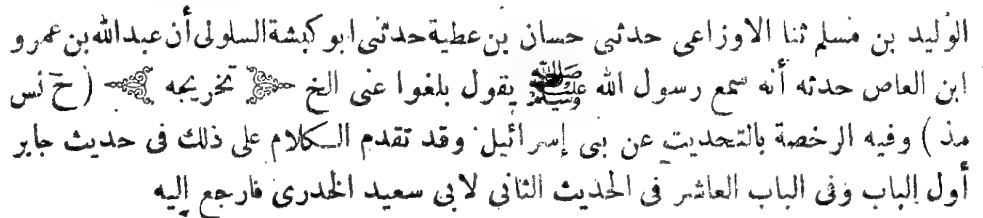 الوليد بن مسلم ثنا الاوزاعى حدثنى حسان بن عطية حدثنى ابو كبشة السلولى أن عبدالله بن عمرو
ابن العاص حدثه أنه سمع رسول الله ﷺ يقول بلغوا عنى الخ ﴿ تخريجه ﴾ ( خ نس
مذ ) وفيه الرخصة بالتحديث عن بنى إسرائيل وقد تقدم الكلام على ذلك فى حديث جابر
أول الباب وفى الباب العاشر فى الحديث الثانى لابى سعيد الخدرى فارجع إليه